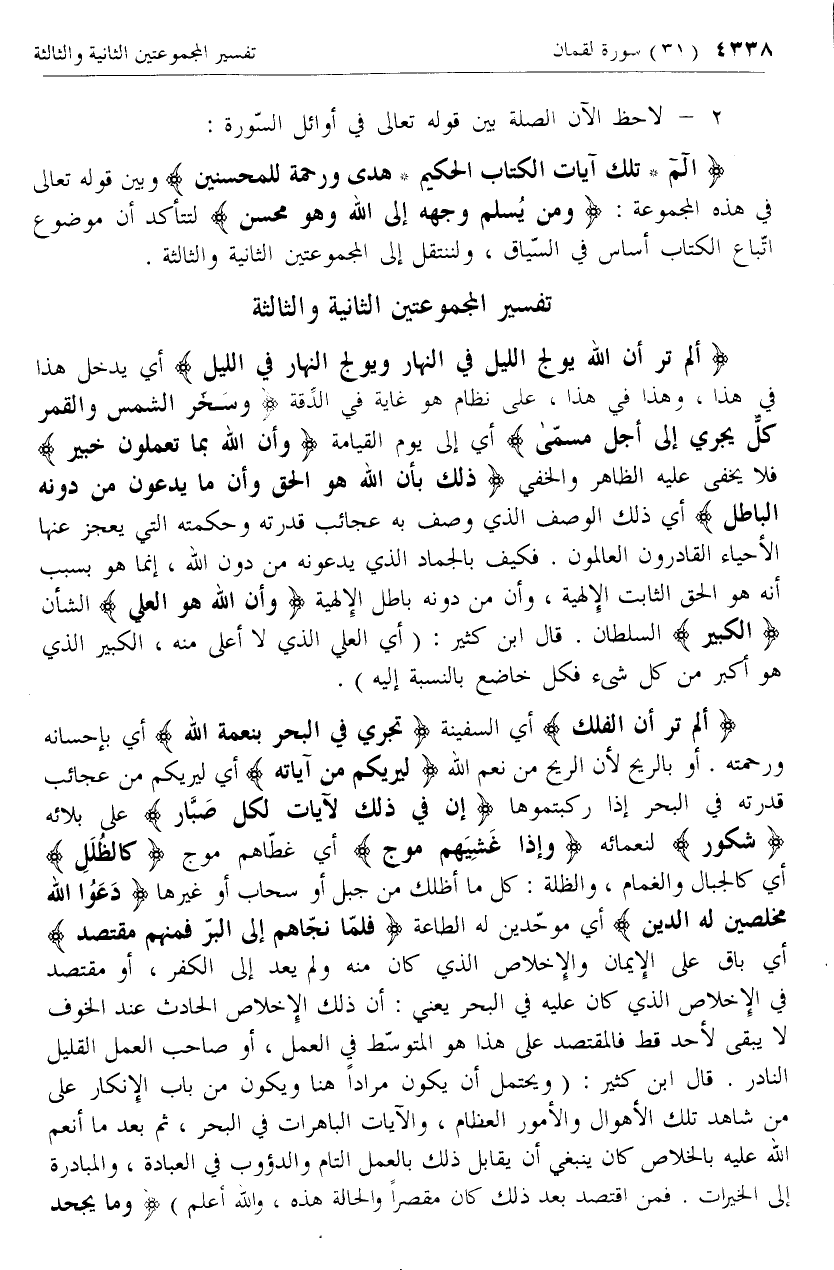 ٤٣٣٨ (٣١) سورة لقمان تفسير المجموعتين الثانية والثالثة
٢ – لاحظ الآن الصلة بين قوله تعالى في أوائل السّورة :
﴿ الۤمۤ * تلك آيات الكتاب الحكيم * هدى ورحمة للمحسنين ﴾ وبين قوله تعالى
في هذه المجموعة : ﴿ ومن يُسلم وجهه إلى الله وهو محسن ﴾ لتتأكد أن موضوع
اتّباع الكتاب أساس في السّياق ، ولننتقل إلى المجموعتين الثانية والثالثة .
تفسير المجموعتين الثانية والثالثة
﴿ ألم تر أن الله يولج الليل في النهار ويولج النهار في الليل ﴾ أي يدخل هذا
في هذا ، وهذا في هذا ، على نظام هو غاية في الدَّقة ﴿ وسَخَّر الشمس والقمر
كلٌّ يجري إلى أجل مسمّىٰ ﴾ أي إلى يوم القيامة ﴿ وأن الله بما تعملون خبير ﴾
فلا يخفى عليه الظاهر والخفي ﴿ ذلك بأن الله هو الحق وأن ما يدعون من دونه
الباطل ﴾ أي ذلك الوصف الذي وصف به عجائب قدرته وحكمته التي يعجز عنها
الأحياء القادرون العالمون . فكيف بالجماد الذي يدعونه من دون الله ، إنما هو بسبب
أنه هو الحق الثابت الإلهية ، وأن من دونه باطل الإلهية ﴿ وأن الله هو العلي ﴾ الشأن
﴿ الكبير ﴾ السلطان . قال ابن كثير : ( أي العلي الذي لا أعلى منه ، الكبير الذي
هو أكبر من كل شىء فكل خاضع بالنسبة إليه ) .
﴿ ألم تر أن الفلك ﴾ أي السفينة ﴿ تجري في البحر بنعمة الله ﴾ أي بإحسانه
ورحمته . أو بالريح لأن الريح من نعم الله ﴿ ليريكم من آياته ﴾ أي ليريكم من عجائب
قدرته في البحر إذا ركبتموها ﴿ إن في ذلك لآيات لكل صَبَّار ﴾ على بلائه
﴿ شكور ﴾ لنعمائه ﴿ وإذا غَشيَهم موج ﴾ أي غطّاهم موج ﴿ كالظُلَلِ ﴾
أي كالجبال والغمام ، والظلة : كل ما أظلك من جبل أو سحاب أو غيرها ﴿ دَعَوُا الله
مخلصين له الدين ﴾ أي موحّدين له الطاعة ﴿ فلمّا نجّاهم إلى البرّ فمنهم مقتصد ﴾
أي باق على الإيمان والإخلاص الذي كان منه ولم يعد إلى الكفر ، أو مقتصد
في الإخلاص الذي كان عليه في البحر يعني : أن ذلك الإخلاص الحادث عند الخوف
لا يبقى لأحد قط فالمقتصد على هذا هو المتوسّط في العمل ، أو صاحب العمل القليل
النادر . قال ابن كثير : ( ويحتمل أن يكون مراداً هنا ويكون من باب الإنكار على
من شاهد تلك الأهوال والأمور العظام ، والآيات الباهرات في البحر ، ثم بعد ما أنعم
الله عليه بالخلاص كان ينبغي أن يقابل ذلك بالعمل التام والدؤوب في العبادة ، والمبادرة
إلى الخيرات . فمن اقتصد بعد ذلك كان مقصراً والحالة هذه ، والله أعلم ) ﴿ وما يجحد